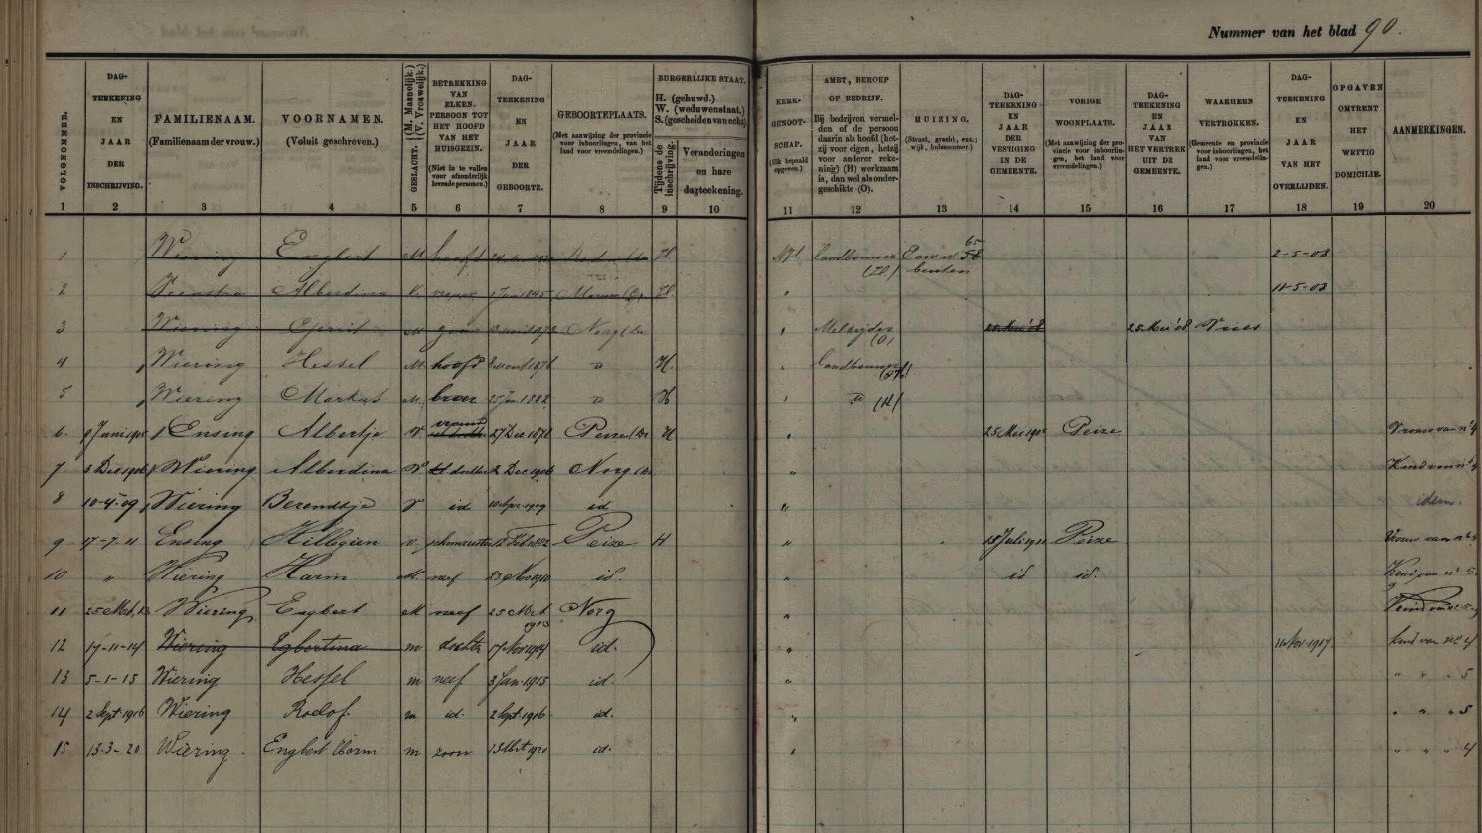 Nummer van het blad 90.
VOLGNOMMER.
DAG-TEEKENING EN JAAR DER INSCHRIJVING.
FAMILIENAAM. (Familienaam der vrouw.)
VOORNAMEN. (Voluit geschreven.)
GESLACHT. (M. Mannelijk.) (V. Vrouwelijk.)
BETREKKING VAN ELKEN PERSOON TOT HET HOOFD VAN HET HUISGEZIN. (Niet in te vullen voor afzonderlijk levende personen.)
DAG-TEEKENING EN JAAR DER GEBOORTE.
GEBOORTEPLAATS. (Met aanwijzing der provincie voor inboorlingen, van het land voor vreemdelingen.)
BURGERLIJKE STAAT. H. (gehuwd.) W. (weduwenstaat.) S. (gescheiden van echt.)
Tijdens de inschrijving.
Veranderingen en hare dagteekening.
KERK-GENOOT-SCHAP. (Elk bepaald opgeven.)
AMBT, BEROEP OF BEDRIJF. Bij bedrijven vermelden of de persoon daarin als hoofd (hetzij voor eigen, hetzij voor anderer rekening) (H) werkzaam is, dan wel als ondergeschikte (O).
HUIZING. (Straat, gracht, enz.; wijk, huisnommer.)
DAG-TEEKENING EN JAAR DER VESTIGING IN DE GEMEENTE.
VORIGE WOONPLAATS. (Met aanwijzing der provincie voor inboorlingen, het land voor vreemdelingen.)
DAG-TEEKENING EN JAAR VAN HET VERTREK UIT DE GEMEENTE.
WAARHEEN VERTROKKEN. (Gemeente en provincie voor inboorlingen, het land voor vreemdelingen.)
DAG-TEEKENING EN JAAR VAN HET OVERLIJDEN.
OPGAVEN OMTRENT HET WETTIG DOMICILIE.
AANMERKINGEN.
1 2 3 4 5 6 7 8 9 10 11 12 13 14 15 16 17 18 19 20
1 Wiering Engbert M hoofd H N H Landbouwer (H) 65 buiten 2-5-08
2 Veenstra Alberdina V. vrouw 1845 Marum (Gr) H " 11-5-08
3 Wiering Gerrit M zoon Norg (Dr " Melkrijder (O) 25 Mei '08 Vries
4 Wiering Hessel M. hoofd 1876 " H. " Landbouwer (H)
5 Wiering Markus M. broer 25 Jan 1882 " H " " (H)
6. Juni Ensing Albertje V. vrouw 27 Dec 1878 Peize (Dr H " 25 Mei Peize Vrouw van no 4
7 3 Dec 1906 Wiering Alberdina V. dochter 2 Dec 1906 Norg (Dr " Kind van no 4
8 10-4-09 Wiering Berendtje V id id " idem.
9 17-7-11 Ensing Hillegien V. 12 Feb 1882 Peize H " 15 Juli 1911 Peize Vrouw van no 5
10 " Wiering Harm M. neef 23 Nov 1910 id. " id id. Kind van no 5
11 25 Mrt. 13 Wiering Engbert M neef 25 Mrt 1913 Norg " Kind van no 5
12 17-11-14 Wiering Egbertina m dochter 17 Nov 1914 id. " 11 Nov. 1917 kind van no 4
13 5-1-15 Wiering Hessel m neef 3 Jan. 1915 id. " " " " 5
14 2 Sept. 1916 Wiering Roelof. m id. 2 Sept. 1916 id. " " " " 5
15 15-3-20 Wiering Engbert Harm m zoon 13 Mrt 1920 id. " " " " 4